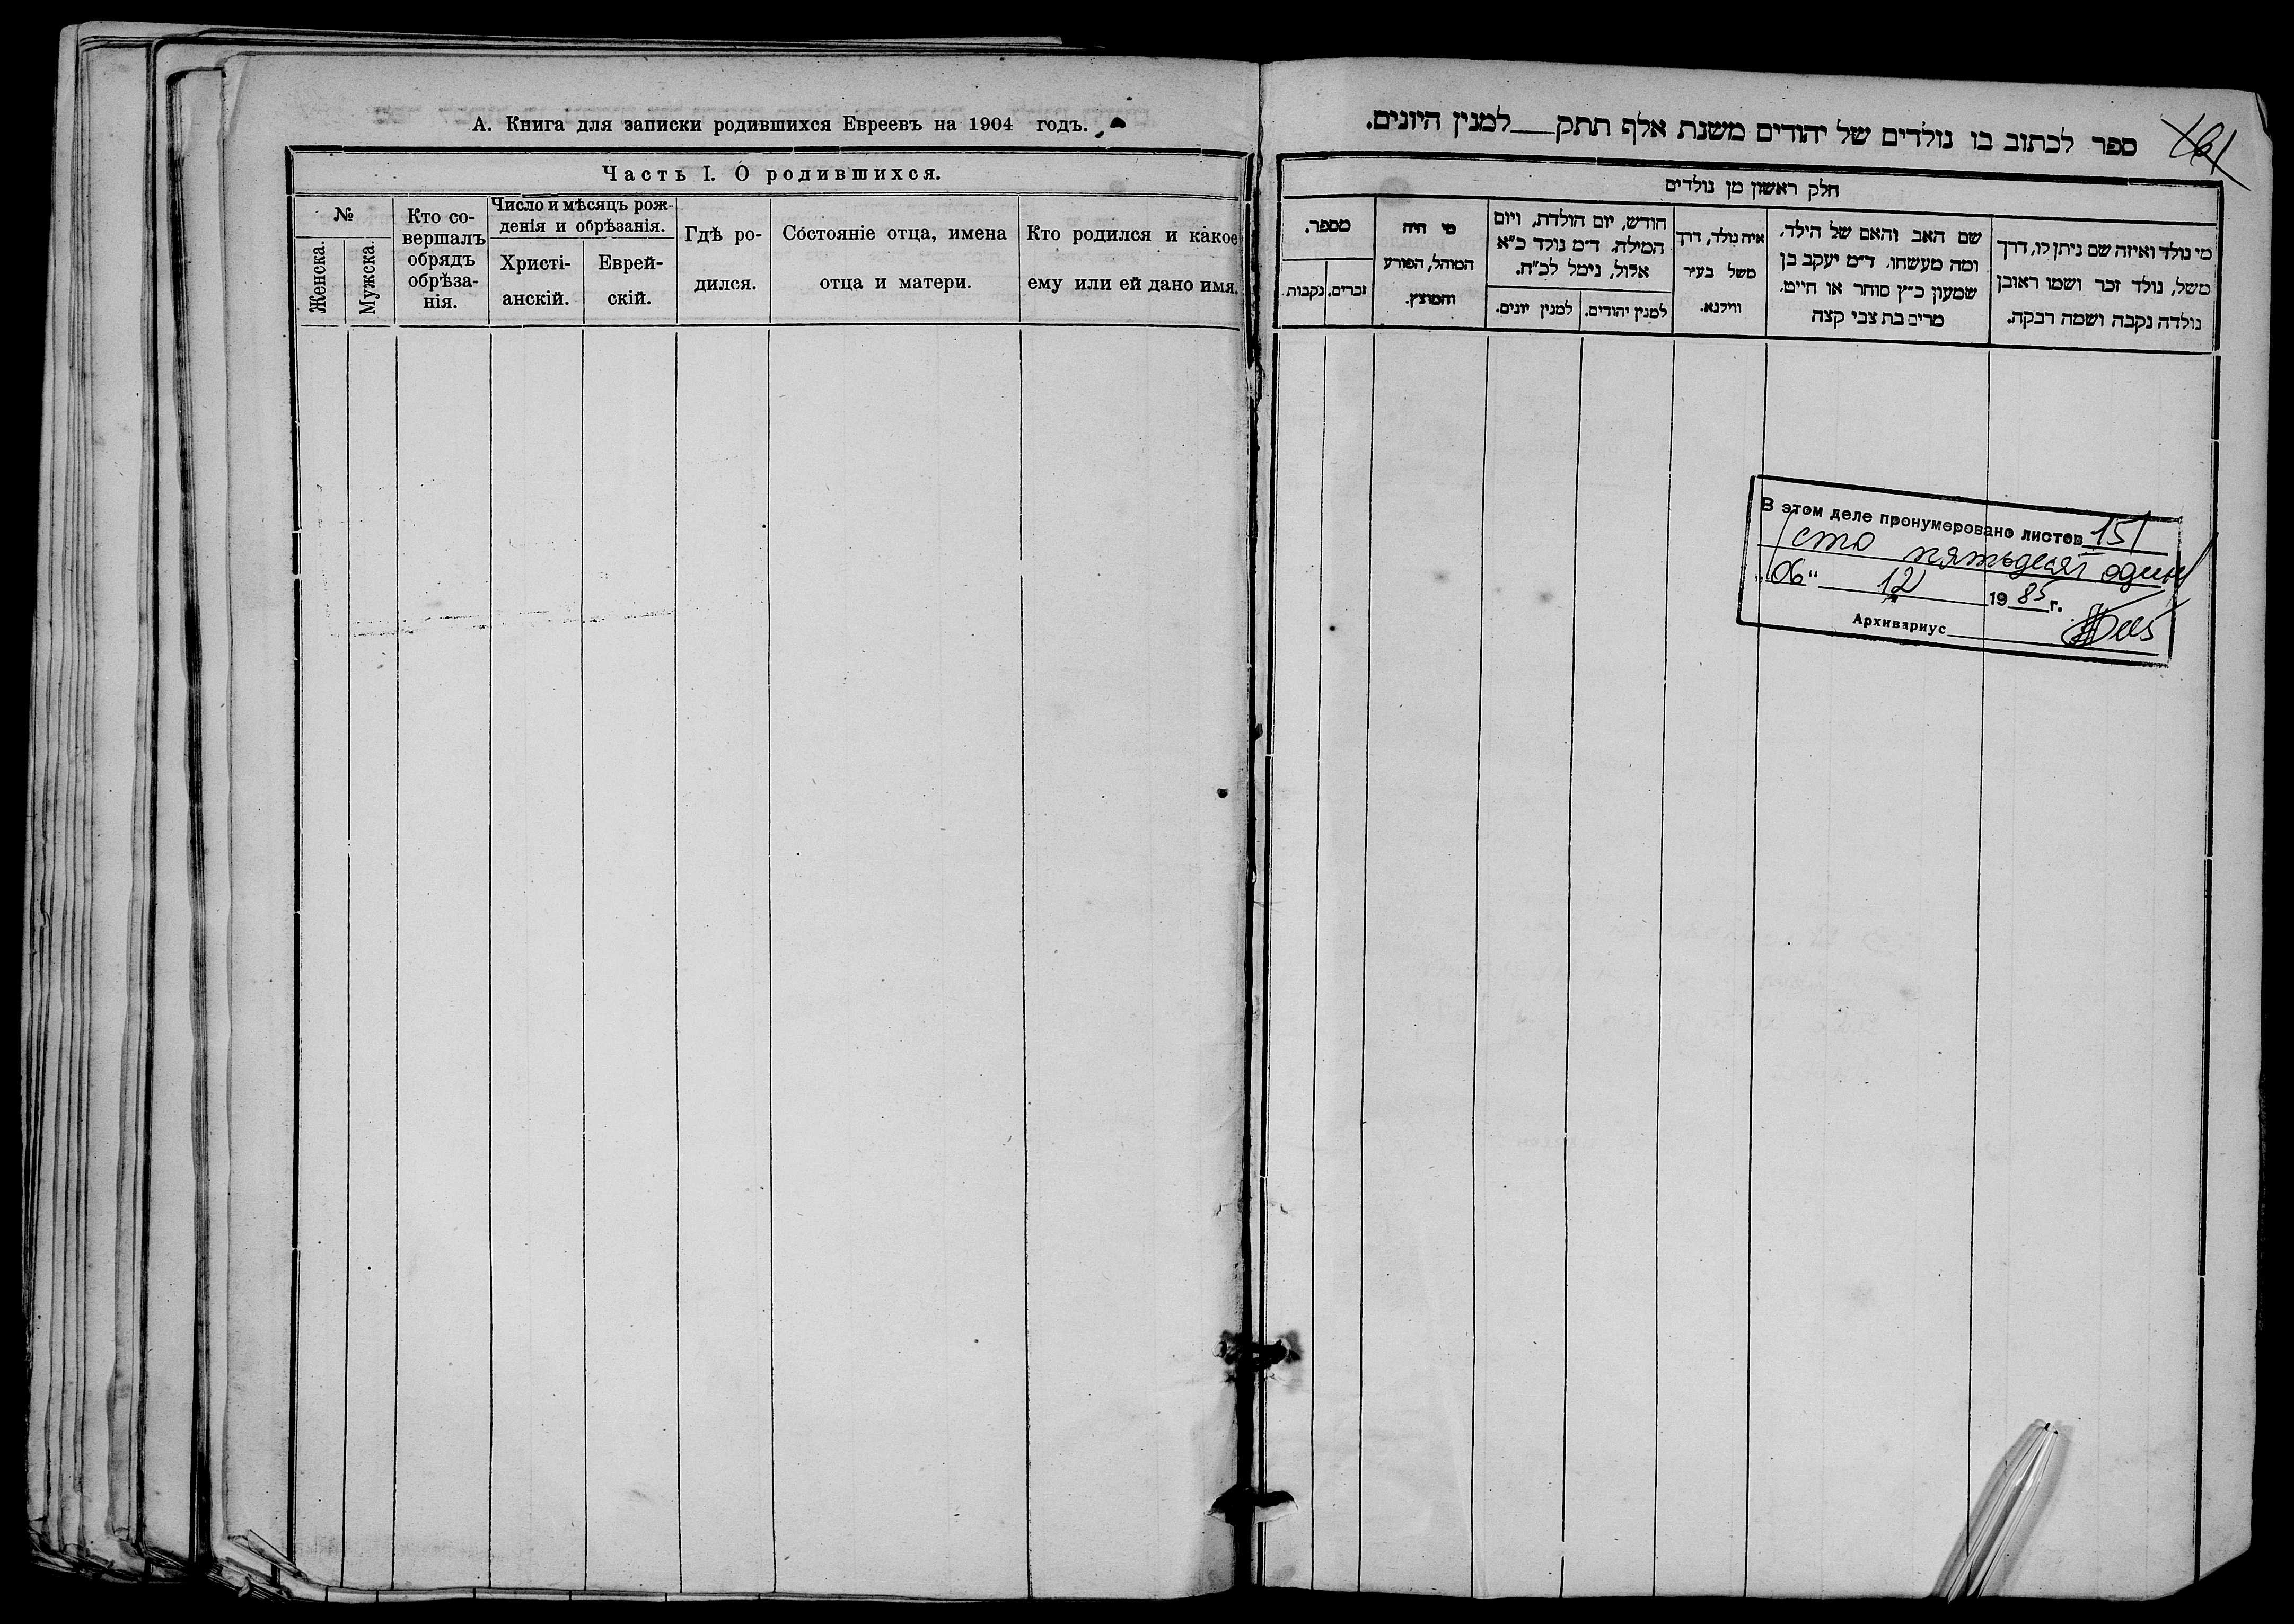 А. Книга для записки родившихся Евреевъ на 1904 годъ.
Часть I. О родившихся.
№
Женска.
Мужска.
Кто со-
вершалъ
обрядъ
обрѣза-
нія.
Число и мѣсяцъ рож-
денія и обрѣзанія.
Христі-
анскій.
Еврей-
скій.
Гдѣ ро-
дился.
Состояніе отца, имена
отца и матери.
Кто родился и какое
ему или ей дано имя.
ספר לכתוב בו נולדים של יהודים משנת אלף תתק___למנין היונים.
חלק ראשון מן נולדים
מי נולד ואיזה שם ניתן לו, דרך
משל, נולד זכר ושמו ראובן
נולדה נקבה ושמה רבקה.
שם האב והאם של הילד,
ומה מעשהו, ד״מ יעקב בן
שמעון כ״ץ סוחר או חייט.
מרים בת צבי קצה
איה נולד, דרך
משל בעיר
ווילנא.
חודש, יום הולדת, ויום
המילה, ד״מ נולד כ״א
אלול, נימל לכ״ח.
למנין יהודים.
למנין יונים.
מי היה
המוהל, הפורע
והמוצץ.
מספר.
זכרים.
נקבות.
В этом деле пронумеровано листов 151
/сто пятьдесят один/
„06“ 12 1985 г.
Архивариус